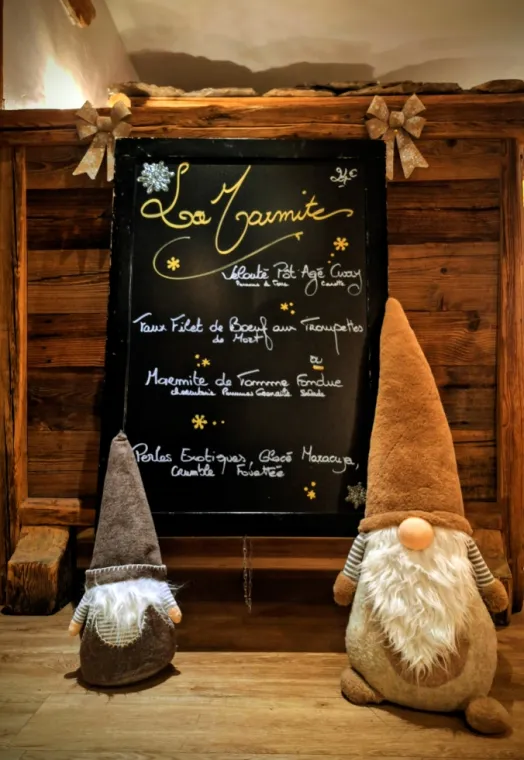 La Marmite
Velouté Pôt Agé Curry
Pomme de Terre Carotte
Faux Filet de Boeuf aux Trompettes
de Mort
ou
Marmite de Tomme Fondue
charcuterie Pommes Grenaille Salade
Perles Exotiques, Glacé Maracuja,
Crumble Fouettée